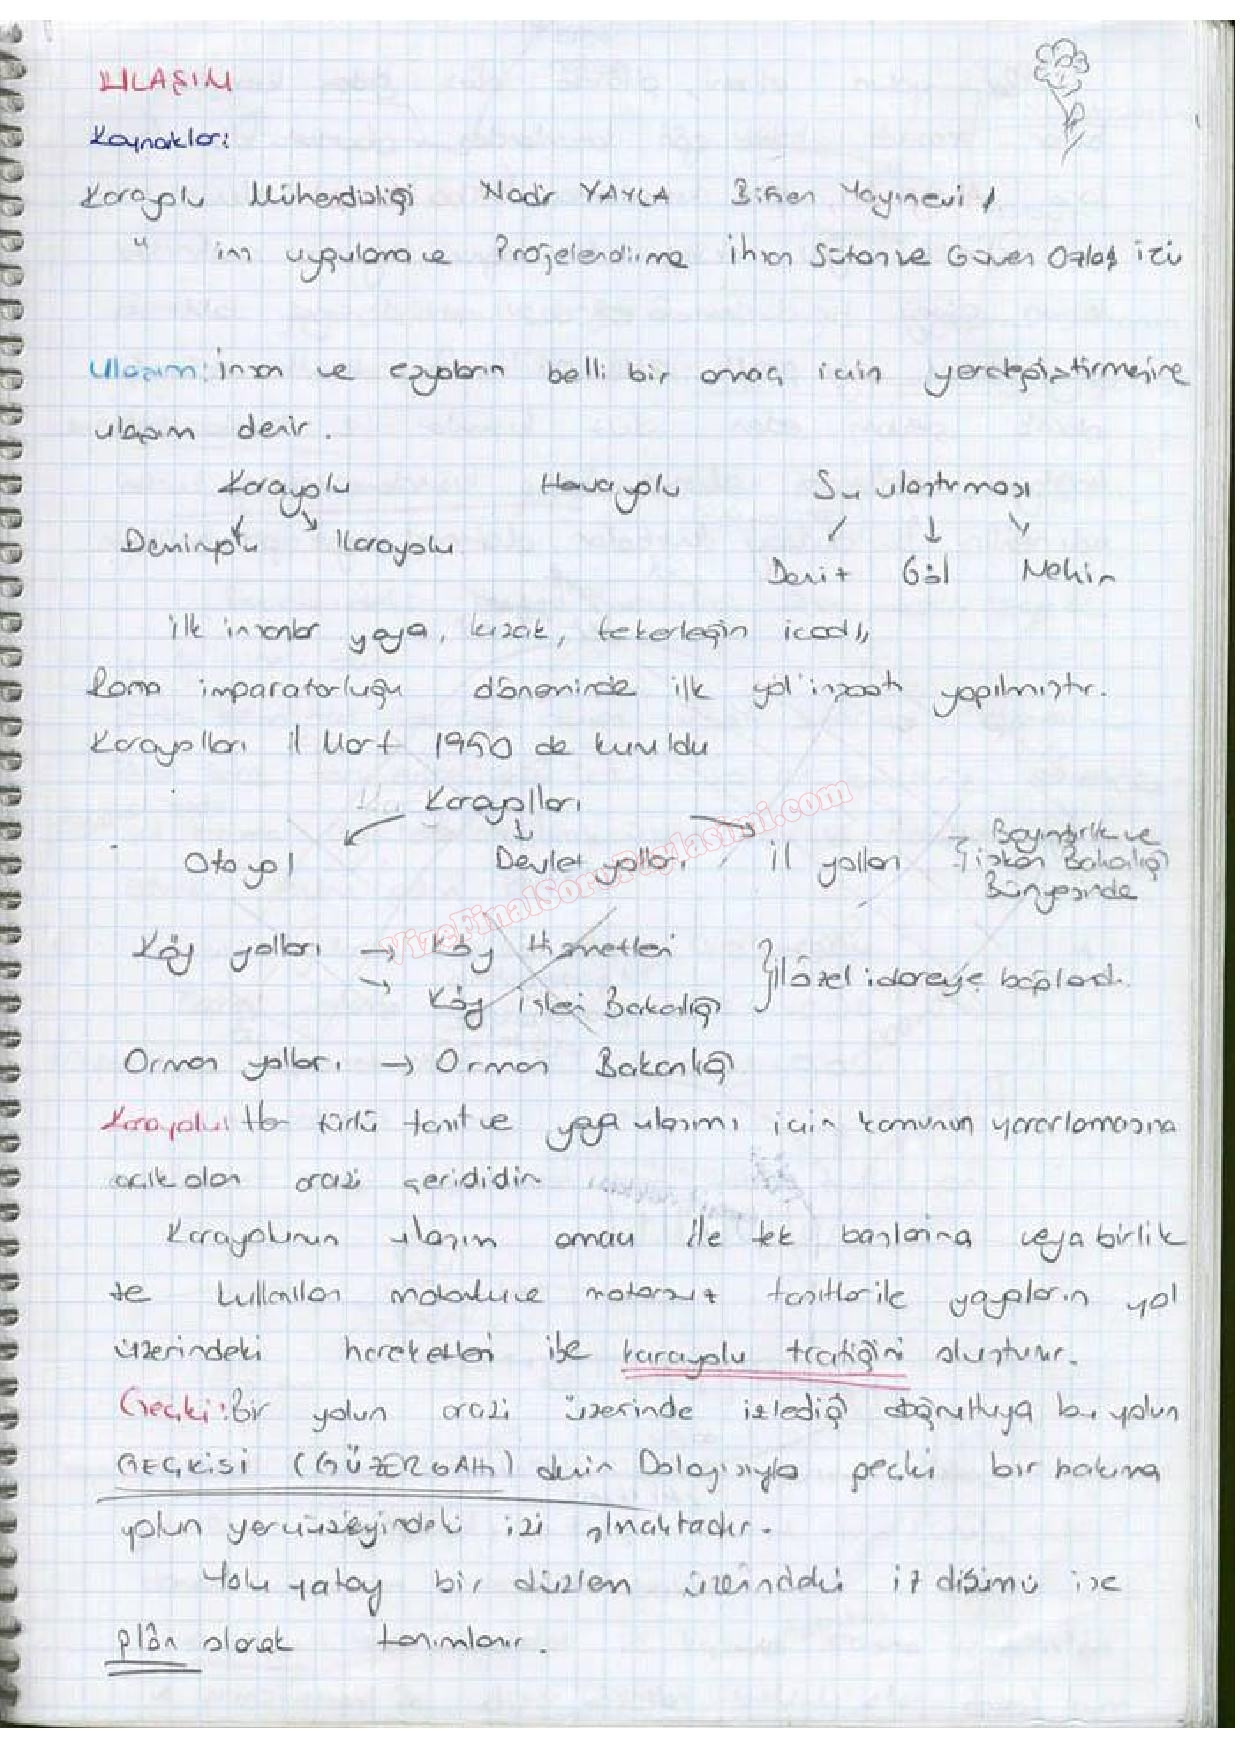 ULAŞIM
Kaynaklar:
Karayolu Mühendisliği Nadir YAYLA Birsen Yayınevi
" inş uygulama ve Projelendirme ihsan Güven Özbaş
Ulaşım: İnsan ve eşyaların belli bir amaç için yerdeğiştirmesine
ulaşım denir.
Karayolu Havayolu Su ulaştırması
Demiryolu Karayolu
Deniz Göl Nehir
ilk insanlar yaya, kızak, tekerleğin icadı,
Roma imparatorluğu döneminde ilk yol inşaatı yapılmıştır.
Karayolları 11 Mart 1950 de kuruldu
Karayolları
Otoyol Devlet yolları İl yolları
Bayındırlık ve
iskan Bakanlığı
Bünyesinde
Köy yolları → Köy Hizmetleri
→ Köy İşleri Bakanlığı
il özel idareye bağlandı.
Orman yolları → Orman Bakanlığı
Karayolu: Her türlü taşıt ve yaya ulaşımı için kamunun yararlanmasına
açık olan arazi şerididir
Karayolunun ulaşım amacı ile tek başlarına veya birlik
te kullanılan motorlu ve motorsuz taşıtlar ile yayaların yol
üzerindeki hareketleri ise karayolu trafiğini oluşturur.
Geçki: Bir yolun arazi üzerinde izlediği doğrultuya bu yolun
GEÇKİSİ (GÜZERGAH) denir Dolayısıyla geçki bir bakıma
yolun yeryüzeyindeki izi olmaktadır.
Yolu yatay bir düzlem üzerindeki iz düşümü ise
plân olarak tanımlanır.
VizeFinalSoruPaylasimi.com